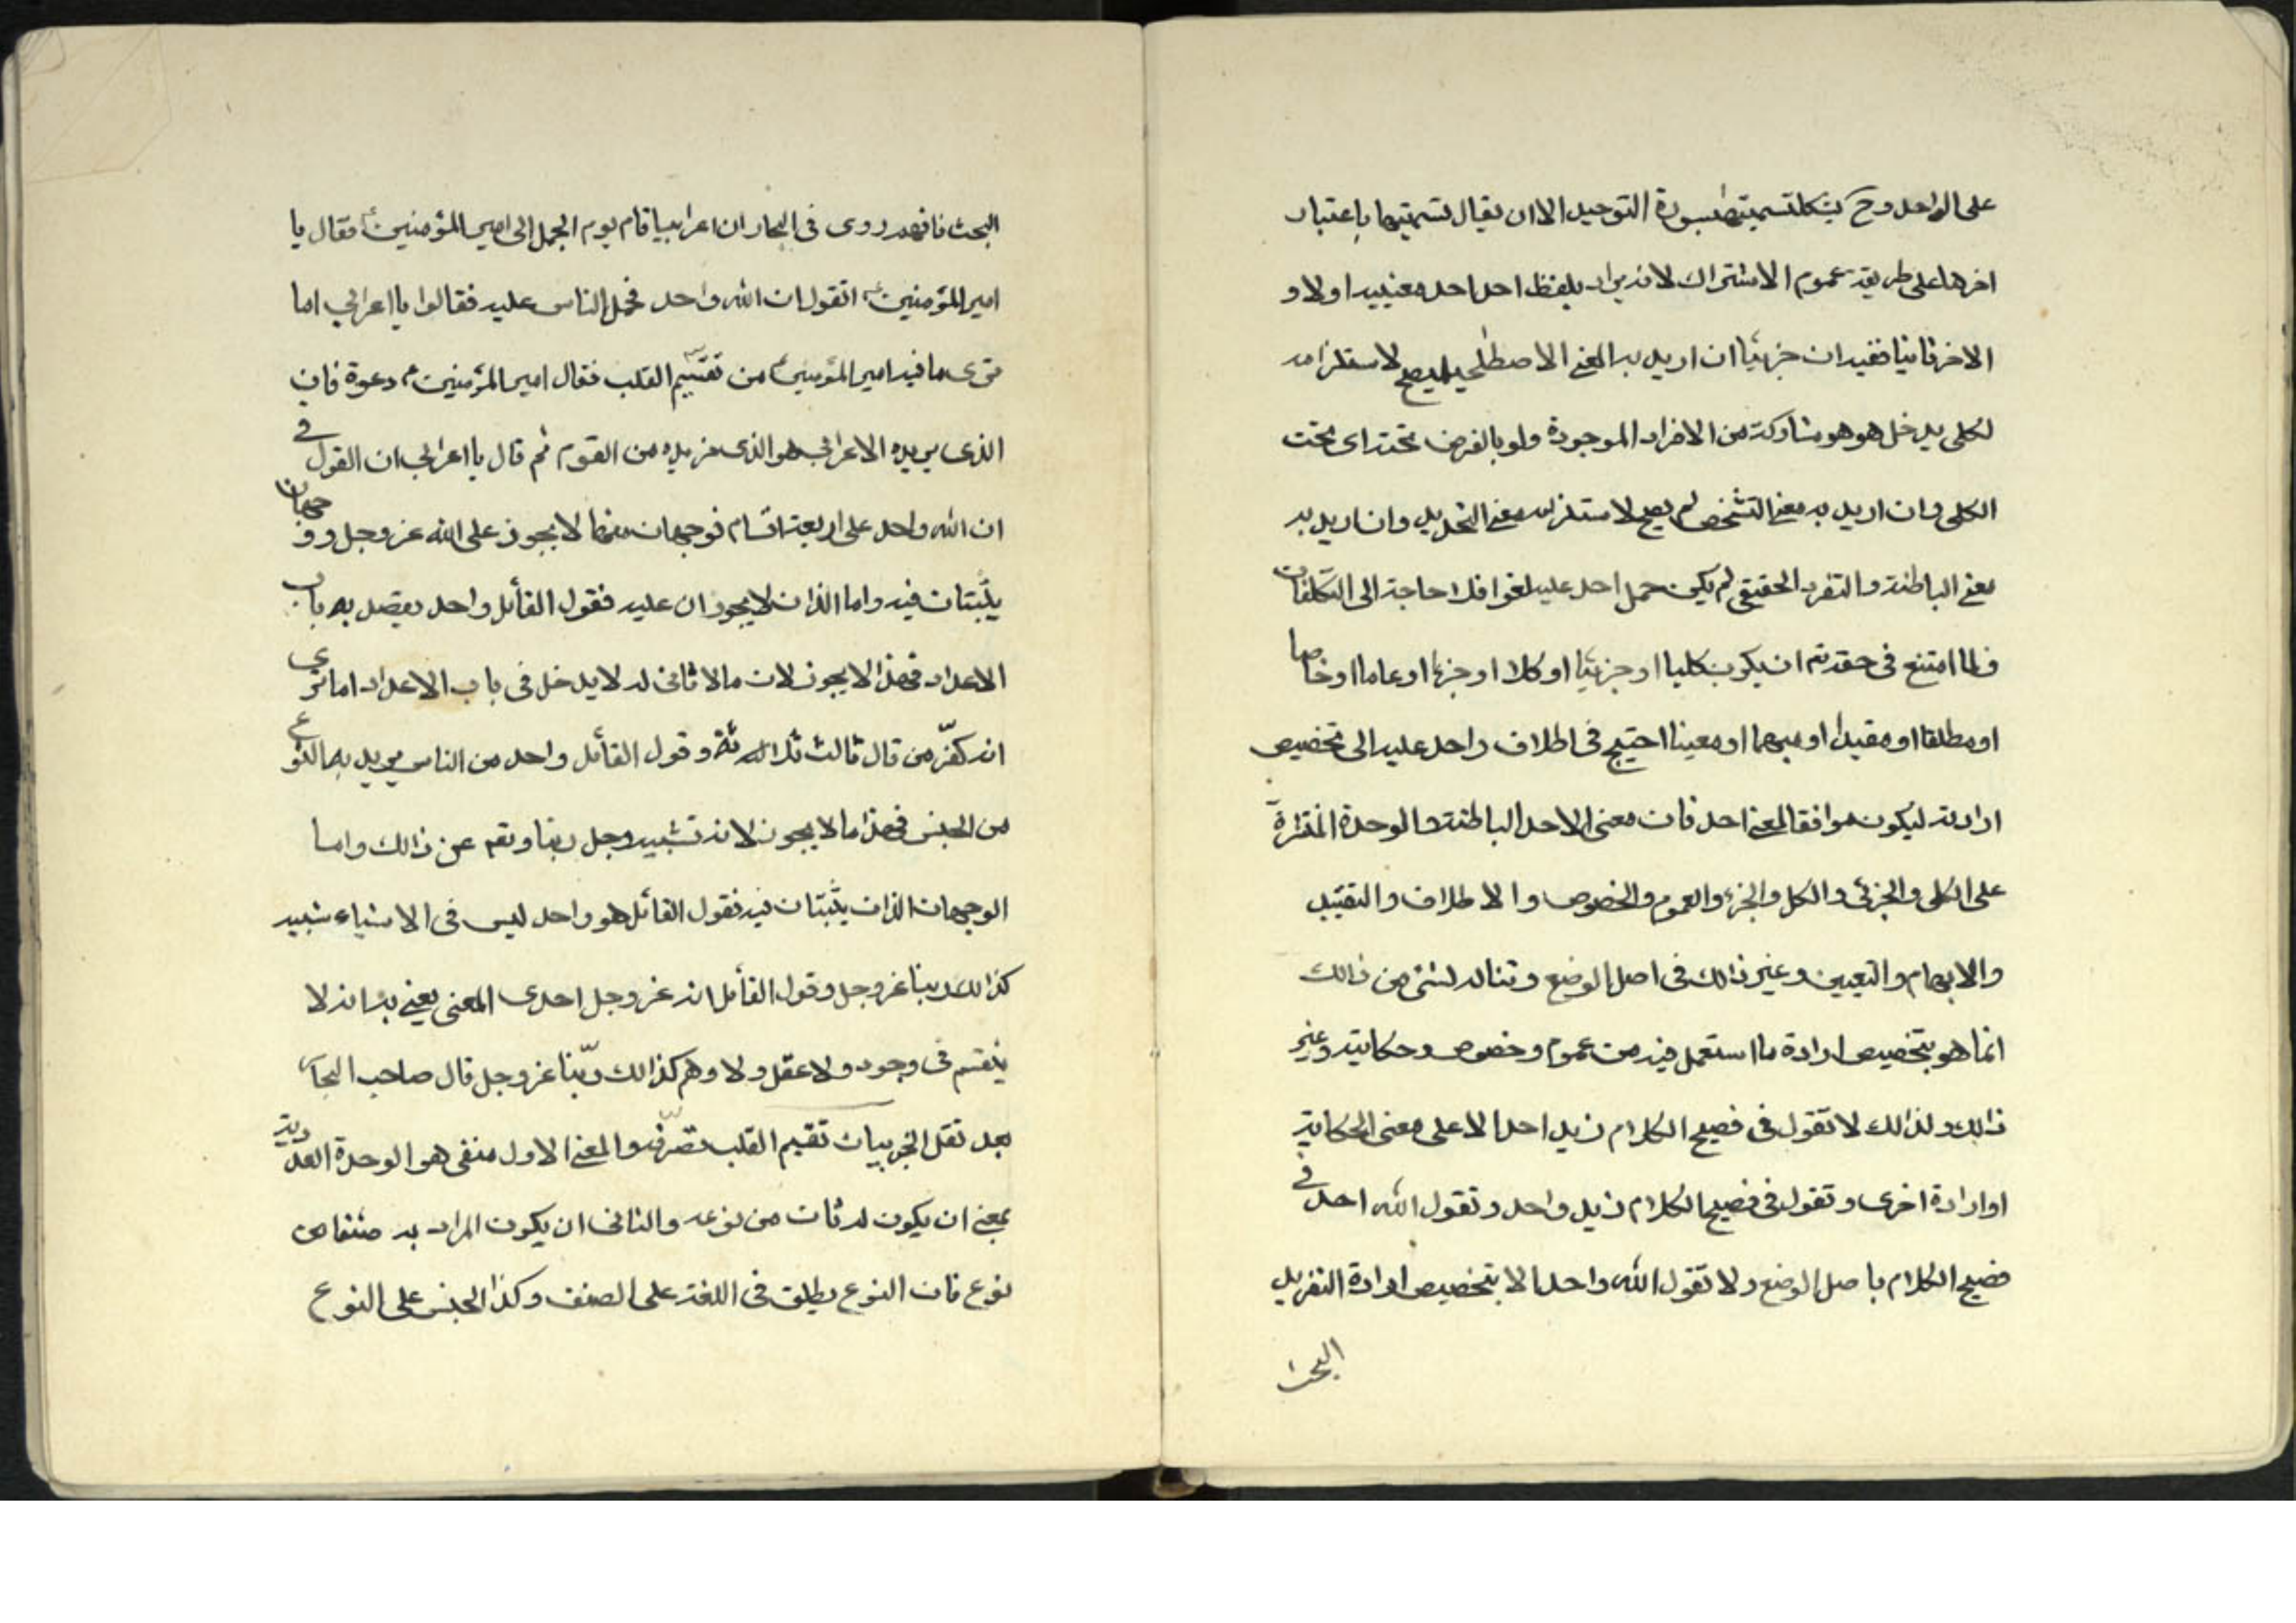 على الواحد وح يشكل تسميتها بسورة التوحيد الا ان يقال تسميتها باعتبار
اخرها على طريقة عموم الاشتراك لانه يراد بلفظ احد احد معنييه اولا و
الاخر ثانيا فقيد ان جزئيا ان اريد به المعنى الاصطلحي لم يصح لاستلزامه
لكلى يدخل هو هو مشاركة من الافراد الموجودة ولو بالفرض تحته اى تحت
الكلى وان اريد به معنى التشخص لم يصح لاستلزامه معنى التحديد وان اريد به
معنى الباطنة والتفرد الحقيقى لم يكن حمل احد عليه لغوا فلا حاجة الى التكلفات
فلما امتنع فى حقه تم ان يكون كليا او جزئيا او كلا او جزءا او عاما او خاصا
او مطلقا او مقيدا او مبهما او معينا احتيج فى اطلاق واحد عليه الى تخصيص
ارادته ليكون موافقا لمعنى احد فان معنى الاحد الباطنة والوحدة المنزهة
على الكلى والجزئى والكل والجزء والعموم والخصوص والاطلاق والتقييد
والابهام والتعيين وغير ذالك فى اصل الوضع وتناله لشئ من ذالك
انما هو بتخصيص ارادة ما استعمل فيه من عموم وخصوص وحكاية وغير
ذالك ولذالك لا تقول فى فصيح الكلام زيد احد الا على معنى الحكاية
او ارادة اخرى وتقول فى فصيح الكلام زيد واحد وتقول الله احد فى
فصيح الكلام باصل الوضع ولا تقول الله واحد الا بتخصيص ارادة التفريد
البحت
البحت فافهم روى فى البحار ان اعرابيا قام يوم الجمل الى امير المؤمنين ع فقال يا
امير المؤمنين ع اتقول ان الله واحد فحمل الناس عليه فقالوا يا اعرابي اما
ترى ما فيه امير المؤمنين ع من تقسيم القلب فقال امير المؤمنين ع دعوه فان
الذى يريده الاعرابي هو الذى نريده من القوم ثم قال يا اعرابي ان القول فى
ان الله واحد على اربعة اقسام فوجهان منها لا يجوز على الله عز وجل ووجهان
يثبتان فيه واما الذان لا يجوزان عليه فقول القائل واحد يقصد به باب
الاعداد فهذا لا يجوز لان ما لا ثانى له لا يدخل فى باب الاعداد اما ترى
انه كفر من قال ثالث ثلاثة وقول القائل واحد من الناس يريد به النوع
من الجنس فهذا ما لا يجوز لانه تشبيه وجل ربنا وتعم عن ذالك واما
الوجهان الذان يثبتان فيه فقول القائل هو واحد ليس فى الاشياء شبيه
كذالك ربنا عز وجل وقول القائل انه عز وجل احدى المعنى يعنى به انه لا
ينقسم فى وجود ولا عقل ولا وهم كذالك ربنا عز وجل قال صاحب البحار
بعد نقل الخبر بيان تقسيم القلب تفرقه والمعنى الاول منفى هو الوحدة العددية
بمعنى ان يكون له ثان من نوعه والثانى ان يكون المراد به صنفا من
نوع فان النوع يطلق فى اللغة على الصنف وكذا الجنس على النوع